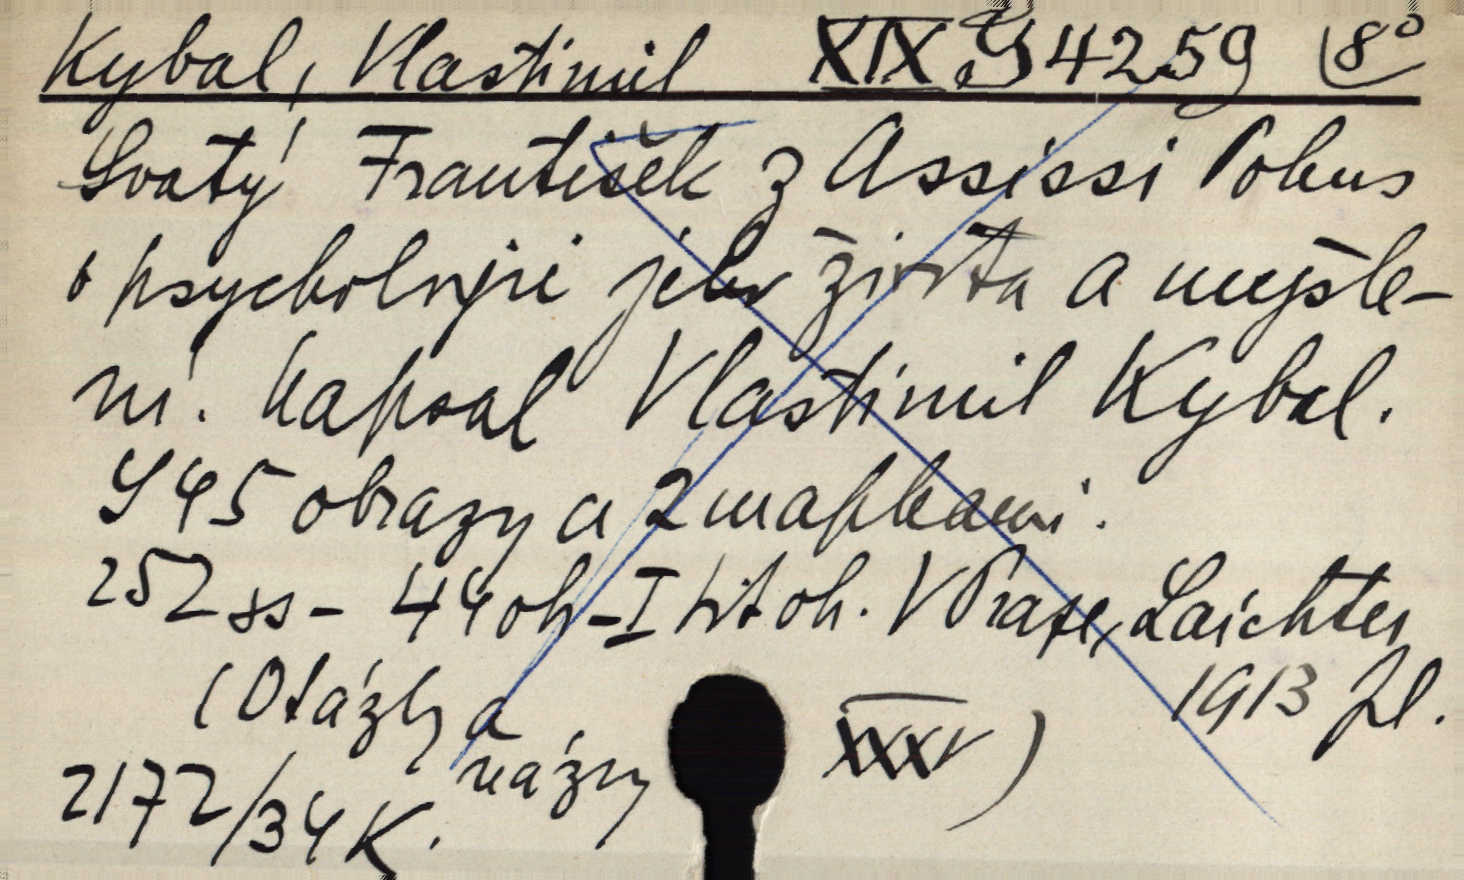 Kybal, Vlastimil XIX G 4259 8°
Svatý František z Assissi Pokus
o psychologii jeho života a myšle-
ní. Napsal Vlastimil Kybal.
S 45 obrazy a 2 mapkami.
252 ss - 44 obr - I tit ob. V Praze, Laichter
1913 Pl.
(Otázky a
názory XXXV)
2172/34 K.